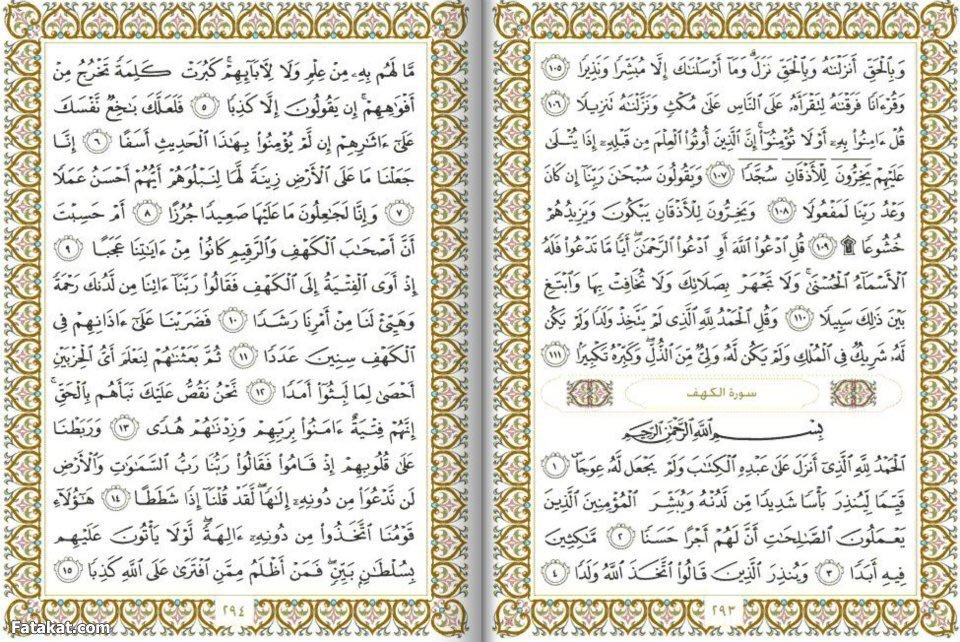 وَبِٱلْحَقِّ أَنزَلْنَٰهُ وَبِٱلْحَقِّ نَزَلَ ۗ وَمَآ أَرْسَلْنَٰكَ إِلَّا مُبَشِّرًا وَنَذِيرًا ١٠٥
وَقُرْءَانًا فَرَقْنَٰهُ لِتَقْرَأَهُۥ عَلَى ٱلنَّاسِ عَلَىٰ مُكْثٍ وَنَزَّلْنَٰهُ تَنزِيلًا ١٠٦
قُلْ ءَامِنُوا۟ بِهِۦٓ أَوْ لَا تُؤْمِنُوٓا۟ ۚ إِنَّ ٱلَّذِينَ أُوتُوا۟ ٱلْعِلْمَ مِن قَبْلِهِۦٓ إِذَا يُتْلَىٰ
عَلَيْهِمْ يَخِرُّونَ لِلْأَذْقَانِ سُجَّدًا ١٠٧ وَيَقُولُونَ سُبْحَٰنَ رَبِّنَآ إِن كَانَ
وَعْدُ رَبِّنَا لَمَفْعُولًا ١٠٨ وَيَخِرُّونَ لِلْأَذْقَانِ يَبْكُونَ وَيَزِيدُهُمْ
خُشُوعًا ۩ ١٠٩ قُلِ ٱدْعُوا۟ ٱللَّهَ أَوِ ٱدْعُوا۟ ٱلرَّحْمَٰنَ ۖ أَيًّا مَّا تَدْعُوا۟ فَلَهُ
ٱلْأَسْمَآءُ ٱلْحُسْنَىٰ ۚ وَلَا تَجْهَرْ بِصَلَاتِكَ وَلَا تُخَافِتْ بِهَا وَٱبْتَغِ
بَيْنَ ذَٰلِكَ سَبِيلًا ١١٠ وَقُلِ ٱلْحَمْدُ لِلَّهِ ٱلَّذِى لَمْ يَتَّخِذْ وَلَدًا وَلَمْ يَكُن
لَّهُۥ شَرِيكٌ فِى ٱلْمُلْكِ وَلَمْ يَكُن لَّهُۥ وَلِىٌّ مِّنَ ٱلذُّلِّ ۖ وَكَبِّرْهُ تَكْبِيرًۢا ١١١
سورة الكهف
بِسْمِ ٱللَّهِ ٱلرَّحْمَٰنِ ٱلرَّحِيمِ
ٱلْحَمْدُ لِلَّهِ ٱلَّذِىٓ أَنزَلَ عَلَىٰ عَبْدِهِ ٱلْكِتَٰبَ وَلَمْ يَجْعَل لَّهُۥ عِوَجَا ۜ ١
قَيِّمًا لِّيُنذِرَ بَأْسًا شَدِيدًا مِّن لَّدُنْهُ وَيُبَشِّرَ ٱلْمُؤْمِنِينَ ٱلَّذِينَ
يَعْمَلُونَ ٱلصَّٰلِحَٰتِ أَنَّ لَهُمْ أَجْرًا حَسَنًا ٢ مَّٰكِثِينَ
فِيهِ أَبَدًا ٣ وَيُنذِرَ ٱلَّذِينَ قَالُوا۟ ٱتَّخَذَ ٱللَّهُ وَلَدًا ٤
٢٩٣
مَّا لَهُم بِهِۦ مِنْ عِلْمٍ وَلَا لِءَابَآئِهِمْ ۚ كَبُرَتْ كَلِمَةً تَخْرُجُ مِنْ
أَفْوَٰهِهِمْ ۚ إِن يَقُولُونَ إِلَّا كَذِبًا ٥ فَلَعَلَّكَ بَٰخِعٌ نَّفْسَكَ
عَلَىٰٓ ءَاثَٰرِهِمْ إِن لَّمْ يُؤْمِنُوا۟ بِهَٰذَا ٱلْحَدِيثِ أَسَفًا ٦ إِنَّا
جَعَلْنَا مَا عَلَى ٱلْأَرْضِ زِينَةً لَّهَا لِنَبْلُوَهُمْ أَيُّهُمْ أَحْسَنُ عَمَلًا
٧ وَإِنَّا لَجَٰعِلُونَ مَا عَلَيْهَا صَعِيدًا جُرُزًا ٨ أَمْ حَسِبْتَ
أَنَّ أَصْحَٰبَ ٱلْكَهْفِ وَٱلرَّقِيمِ كَانُوا۟ مِنْ ءَايَٰتِنَا عَجَبًا ٩
إِذْ أَوَى ٱلْفِتْيَةُ إِلَى ٱلْكَهْفِ فَقَالُوا۟ رَبَّنَآ ءَاتِنَا مِن لَّدُنكَ رَحْمَةً
وَهَيِّئْ لَنَا مِنْ أَمْرِنَا رَشَدًا ١٠ فَضَرَبْنَا عَلَىٰٓ ءَاذَانِهِمْ فِى
ٱلْكَهْفِ سِنِينَ عَدَدًا ١١ ثُمَّ بَعَثْنَٰهُمْ لِنَعْلَمَ أَىُّ ٱلْحِزْبَيْنِ
أَحْصَىٰ لِمَا لَبِثُوٓا۟ أَمَدًا ١٢ نَّحْنُ نَقُصُّ عَلَيْكَ نَبَأَهُم بِٱلْحَقِّ ۚ
إِنَّهُمْ فِتْيَةٌ ءَامَنُوا۟ بِرَبِّهِمْ وَزِدْنَٰهُمْ هُدًى ١٣ وَرَبَطْنَا
عَلَىٰ قُلُوبِهِمْ إِذْ قَامُوا۟ فَقَالُوا۟ رَبُّنَا رَبُّ ٱلسَّمَٰوَٰتِ وَٱلْأَرْضِ
لَن نَّدْعُوَا۟ مِن دُونِهِۦٓ إِلَٰهًا ۖ لَّقَدْ قُلْنَآ إِذًا شَطَطًا ١٤ هَٰٓؤُلَآءِ
قَوْمُنَا ٱتَّخَذُوا۟ مِن دُونِهِۦٓ ءَالِهَةً ۖ لَّوْلَا يَأْتُونَ عَلَيْهِم
بِسُلْطَٰنٍۭ بَيِّنٍ ۖ فَمَنْ أَظْلَمُ مِمَّنِ ٱفْتَرَىٰ عَلَى ٱللَّهِ كَذِبًا ١٥
٢٩٤
Fatakat.com